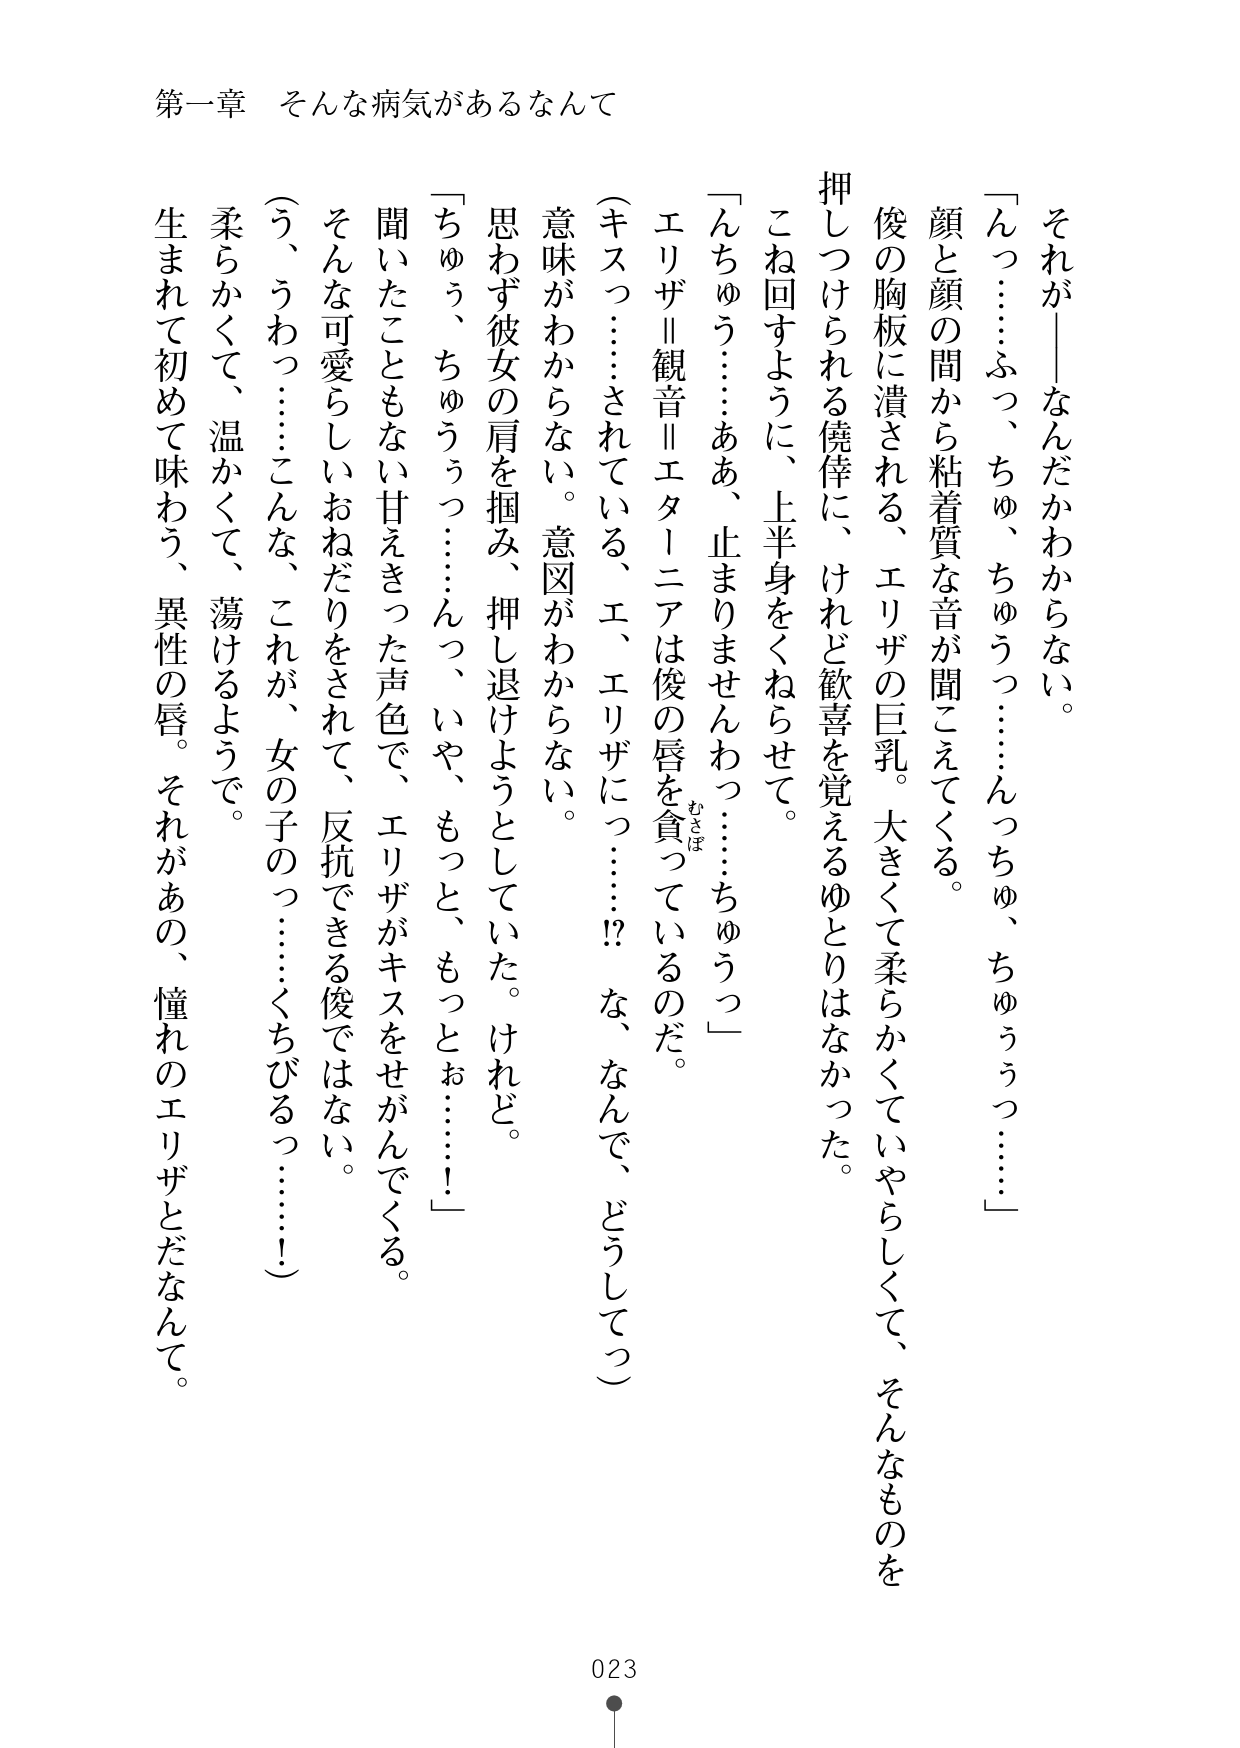 第一章　そんな病気があるなんて
それが――なんだかわからない。
「んっ……ふっ、ちゅ、ちゅうっ……んっちゅ、ちゅぅぅっ……」
顔と顔の間から粘着質な音が聞こえてくる。
俊の胸板に潰される、エリザの巨乳。大きくて柔らかくていやらしくて、そんなものを
押しつけられる僥倖に、けれど歓喜を覚えるゆとりはなかった。
こね回すように、上半身をくねらせて。
「んちゅう……ああ、止まりませんわっ……ちゅうっ」
エリザ＝観音＝エターニアは俊の唇を貪っているのだ。
むさぼ
（キスっ……されている、エ、エリザにっ……!?　な、なんで、どうしてっ）
意味がわからない。意図がわからない。
思わず彼女の肩を掴み、押し退けようとしていた。けれど。
「ちゅぅ、ちゅうぅっ……んっ、いや、もっと、もっとぉ……！」
聞いたこともない甘えきった声色で、エリザがキスをせがんでくる。
そんな可愛らしいおねだりをされて、反抗できる俊ではない。
（う、うわっ……こんな、これが、女の子のっ……くちびるっ……！）
柔らかくて、温かくて、蕩けるようで。
生まれて初めて味わう、異性の唇。それがあの、憧れのエリザとだなんて。
023